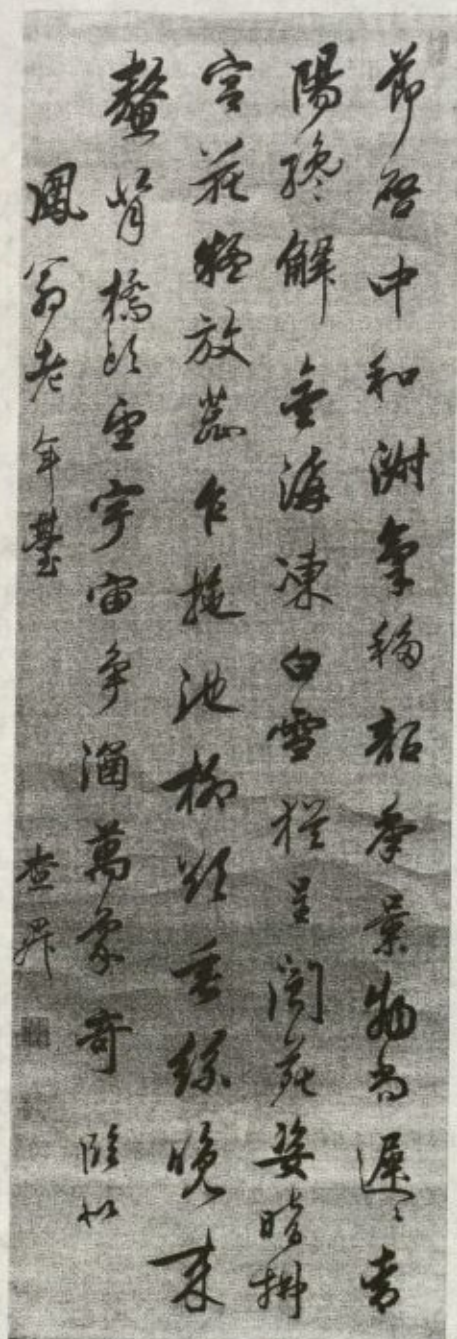 節啓中和淑氣移韶秊景物尚遲〻青
陽纔解金海凍白雪猶呈閬苑姿晴拂
宮花疑放蕊乍拖池柳欲垂絲晚來
鰲背橋頭望宇宙爭涵萬象奇 臨似
鳳翁老年臺 查昇